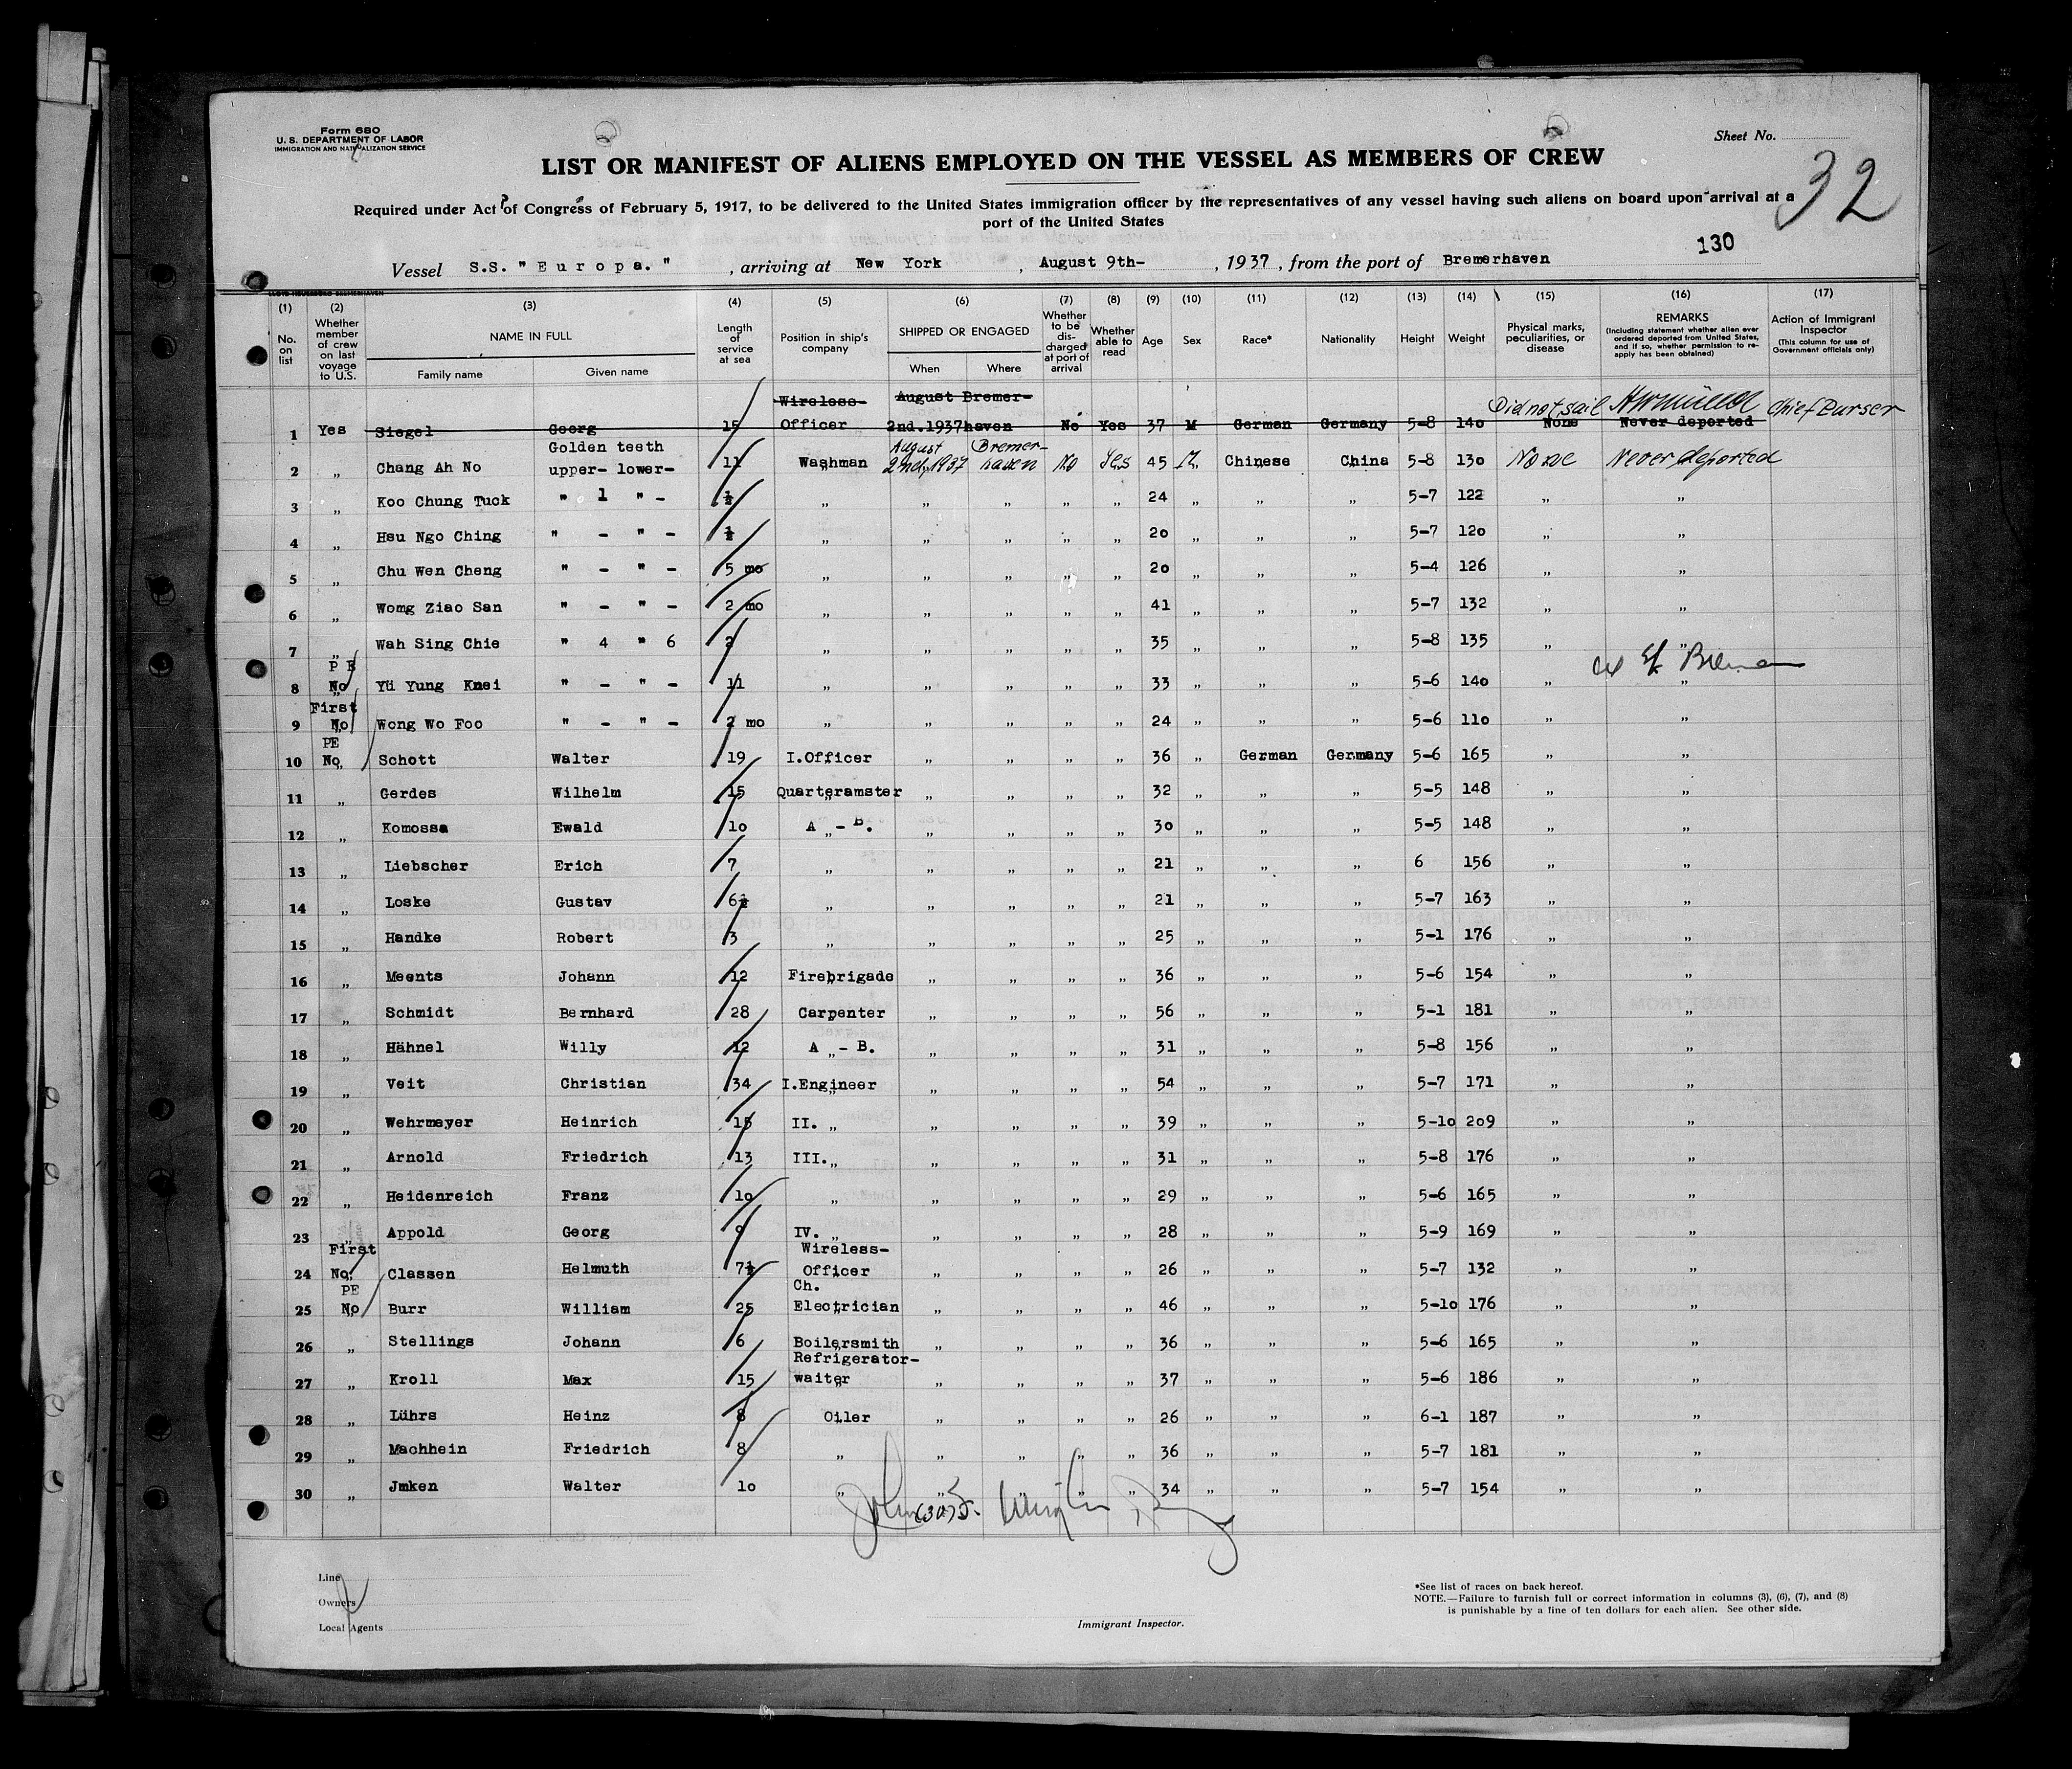 Form 680
U. S. DEPARTMENT OF LABOR
IMMIGRATION AND NATURALIZATION SERVICE
Sheet No.
LIST OR MANIFEST OF ALIENS EMPLOYED ON THE VESSEL AS MEMBERS OF CREW
32
Required under Act of Congress of February 5, 1917, to be delivered to the United States immigration officer by the representatives of any vessel having such aliens on board upon arrival at a
port of the United States
130
Vessel S.S. "Europa." , arriving at New York , August 9th- , 1937 , from the port of Bremerhaven
(1) (2) (3) (4) (5) (6) (7) (8) (9) (10) (11) (12) (13) (14) (15) (16) (17)
No. on list
Whether member of crew on last voyage to U.S.
NAME IN FULL
Family name
Given name
Length of service at sea
Position in ship's company
SHIPPED OR ENGAGED
When
Where
Whether to be discharged at port of arrival
Whether able to read
Age
Sex
Race*
Nationality
Height
Weight
Physical marks, peculiarities, or disease
REMARKS
(Including statement whether alien ever ordered deported from United States, and if so, whether permission to reapply has been obtained)
Action of Immigrant Inspector
(This column for use of Government officials only)
Wireless- August Bremer- Did not sail Chief Purser
1 Yes Siegel Georg 15 Officer 2nd.1937 haven No Yes 37 M German Germany 5-8 140 None Never deported
Golden teeth August Bremer-
2 „ Chang Ah No upper- lower- 11 Washman 2nd,1937 haven No Yes 45 M. Chinese China 5-8 130 None Never deported
3 „ Koo Chung Tuck " 1 " - ½ „ „ „ „ „ 24 „ „ „ 5-7 122 „ „
4 „ Hsu Ngo Ching " - " - ½ „ „ „ „ „ 20 „ „ „ 5-7 120 „ „
5 „ Chu Wen Cheng " - " - 5 mo „ „ „ „ „ 20 „ „ „ 5-4 126 „ „
6 „ Womg Ziao San " - " - 2 mo „ „ „ „ „ 41 „ „ „ 5-7 132 „ „
7 „ Wah Sing Chie " 4 " 6 2 „ „ „ „ „ 35 „ „ „ 5-8 135 „ „
P E Bremen
8 No „ Yü Yung Knei " - " - 11 „ „ „ „ „ 33 „ „ „ 5-6 140 „ „
First
9 No „ Wong Wo Foo " - " - 2 mo „ „ „ „ „ 24 „ „ „ 5-6 110 „ „
PE
10 No „ Schott Walter 19 I.Officer „ „ „ „ 36 „ German Germany 5-6 165 „ „
11 „ Gerdes Wilhelm 15 Quarteramster „ „ „ „ 32 „ „ „ 5-5 148 „ „
12 „ Komossa Ewald 10 A „ - B. „ „ „ „ 30 „ „ „ 5-5 148 „ „
13 „ Liebscher Erich 7 „ „ „ „ „ 21 „ „ „ 6 156 „ „
14 „ Loske Gustav 6½ „ „ „ „ „ 21 „ „ „ 5-7 163 „ „
15 „ Handke Robert 3 „ „ „ „ „ 25 „ „ „ 5-1 176 „ „
16 „ Meents Johann 12 Firebrigade „ „ „ „ 36 „ „ „ 5-6 154 „ „
17 „ Schmidt Bernhard 28 Carpenter „ „ „ „ 56 „ „ „ 5-1 181 „ „
18 „ Hähnel Willy 12 A „ - B. „ „ „ „ 31 „ „ „ 5-8 156 „ „
19 „ Veit Christian 34 I.Engineer „ „ „ „ 54 „ „ „ 5-7 171 „ „
20 „ Wehrmeyer Heinrich 15 II. „ „ „ „ „ 39 „ „ „ 5-10 209 „ „
21 „ Arnold Friedrich 13 III. „ „ „ „ „ 31 „ „ „ 5-8 176 „ „
22 „ Heidenreich Franz 10 „ „ „ „ „ 29 „ „ „ 5-6 165 „ „
23 „ Appold Georg 9 IV. „ „ „ „ „ 28 „ „ „ 5-9 169 „ „
First Wireless-
24 No „ Classen Helmuth 7½ Officer „ „ „ „ 26 „ „ „ 5-7 132 „ „
PE Ch.
25 No „ Burr William 25 Electrician „ „ „ „ 46 „ „ „ 5-10 176 „ „
26 „ Stellings Johann 6 Boilersmith „ „ „ „ 36 „ „ „ 5-6 165 „ „
Refrigerator-
27 „ Kroll Max 15 waiter „ „ „ „ 37 „ „ „ 5-6 186 „ „
28 „ Lührs Heinz 8 Oiler „ „ „ „ 26 „ „ „ 6-1 187 „ „
29 „ Machhein Friedrich 8 „ „ „ „ „ 36 „ „ „ 5-7 181 „ „
30 „ Jmken Walter 10 „ „ „ „ „ 34 „ „ „ 5-7 154 „ „
Line
Owners
Local Agents
Immigrant Inspector.
*See list of races on back hereof.
NOTE.—Failure to furnish full or correct information in columns (3), (6), (7), and (8)
is punishable by a fine of ten dollars for each alien. See other side.